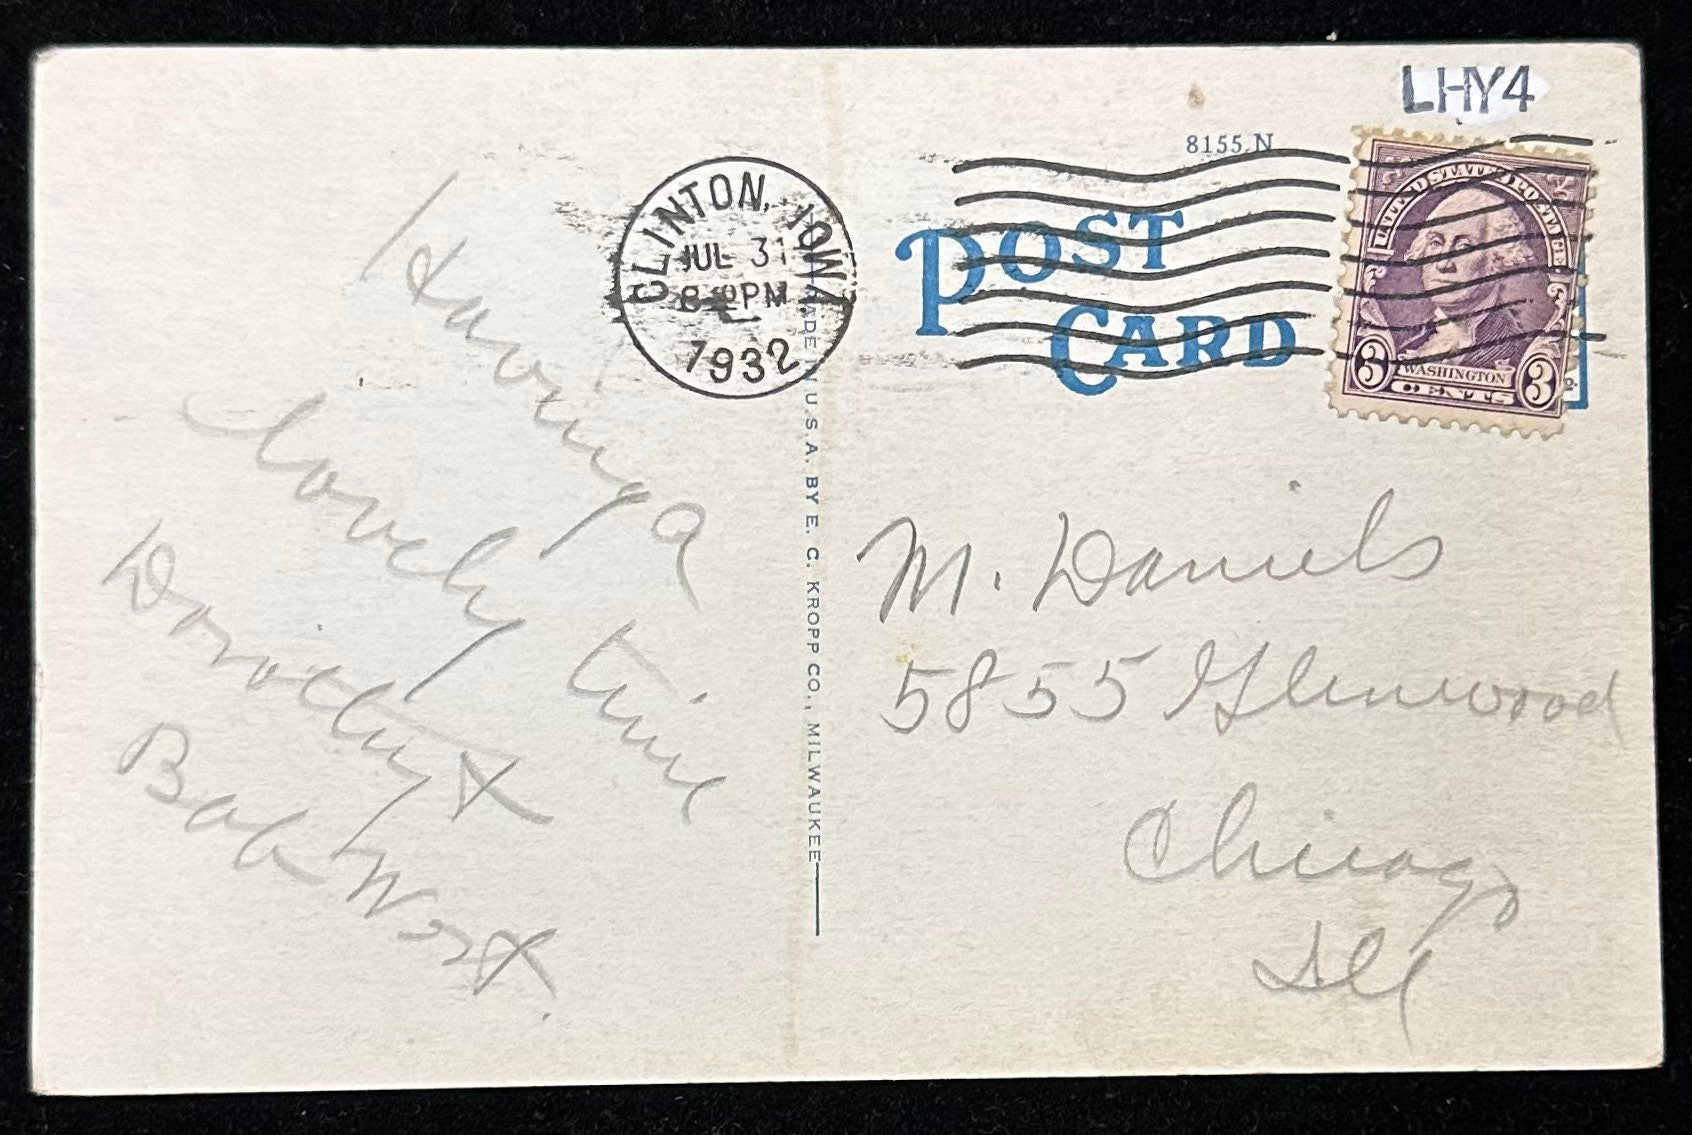 LHY4
8155 N
CLINTON, IOWA
JUL 31
8 PM
1932
POST
CARD
UNITED STATES POSTAGE
3 WASHINGTON 3
CENTS
MADE IN U.S.A. BY E. C. KROPP CO., MILWAUKEE
Having a
lovely time
Dorothy &
Bob
M. Daniels
5855 Glenwood
Chicago
Ill